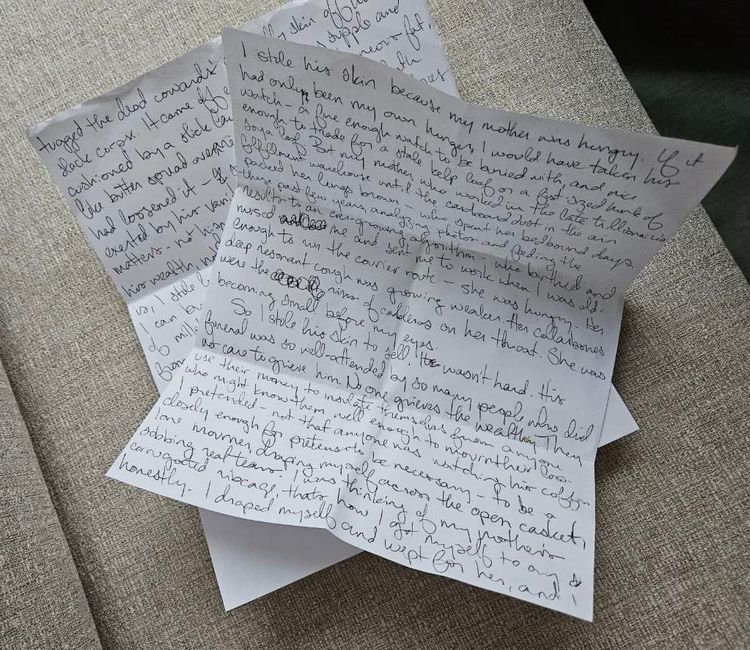 I stole his skin because my mother was hungry. If it
had only been my own hunger, I would have taken his
watch - a fine enough watch to be buried with, and nice
enough to trade for a stale kelp loaf or a fist-sized hunk of
soya loaf. But my mother, who worked in the late trillionaire's
fulfillment warehouse until the cardboard dust in the air
packed her lungs brown - who spent her bedbound days
these past few years analyzing photos and feeding the
results to an ever-growing algorithm - who birthed and
nursed me and sent me to work when I was old
enough to run the courier route - she was hungry. Her
deep resonant cough was growing weaker. Her collarbones
were the rims of calderas on her throat. She was
becoming small before my eyes.
So I stole his skin to sell. It wasn't hard. His
funeral was so well-attended by so many people who did
not care to grieve him. No one grieves the wealthy. They
use their money to insulate themselves from anyone
who might know them well enough to mourn their loss.
I pretended - not that anyone was watching his coffin
closely enough for pretension to be necessary - to be a
lone mourner, draping myself across the open casket,
sobbing real tears. I was thinking of my mother's
corrugated ribcage, that's how I got myself to cry
honestly. I draped myself and wept for her, and I
tugged the dead coward's
skin of his
slack corpse. It came off
supple and
cushioned by a slick
fat
like butter spread
had loosened it - if
exerted by his
matters - not
his wealth
so, I stole
I can
of
from